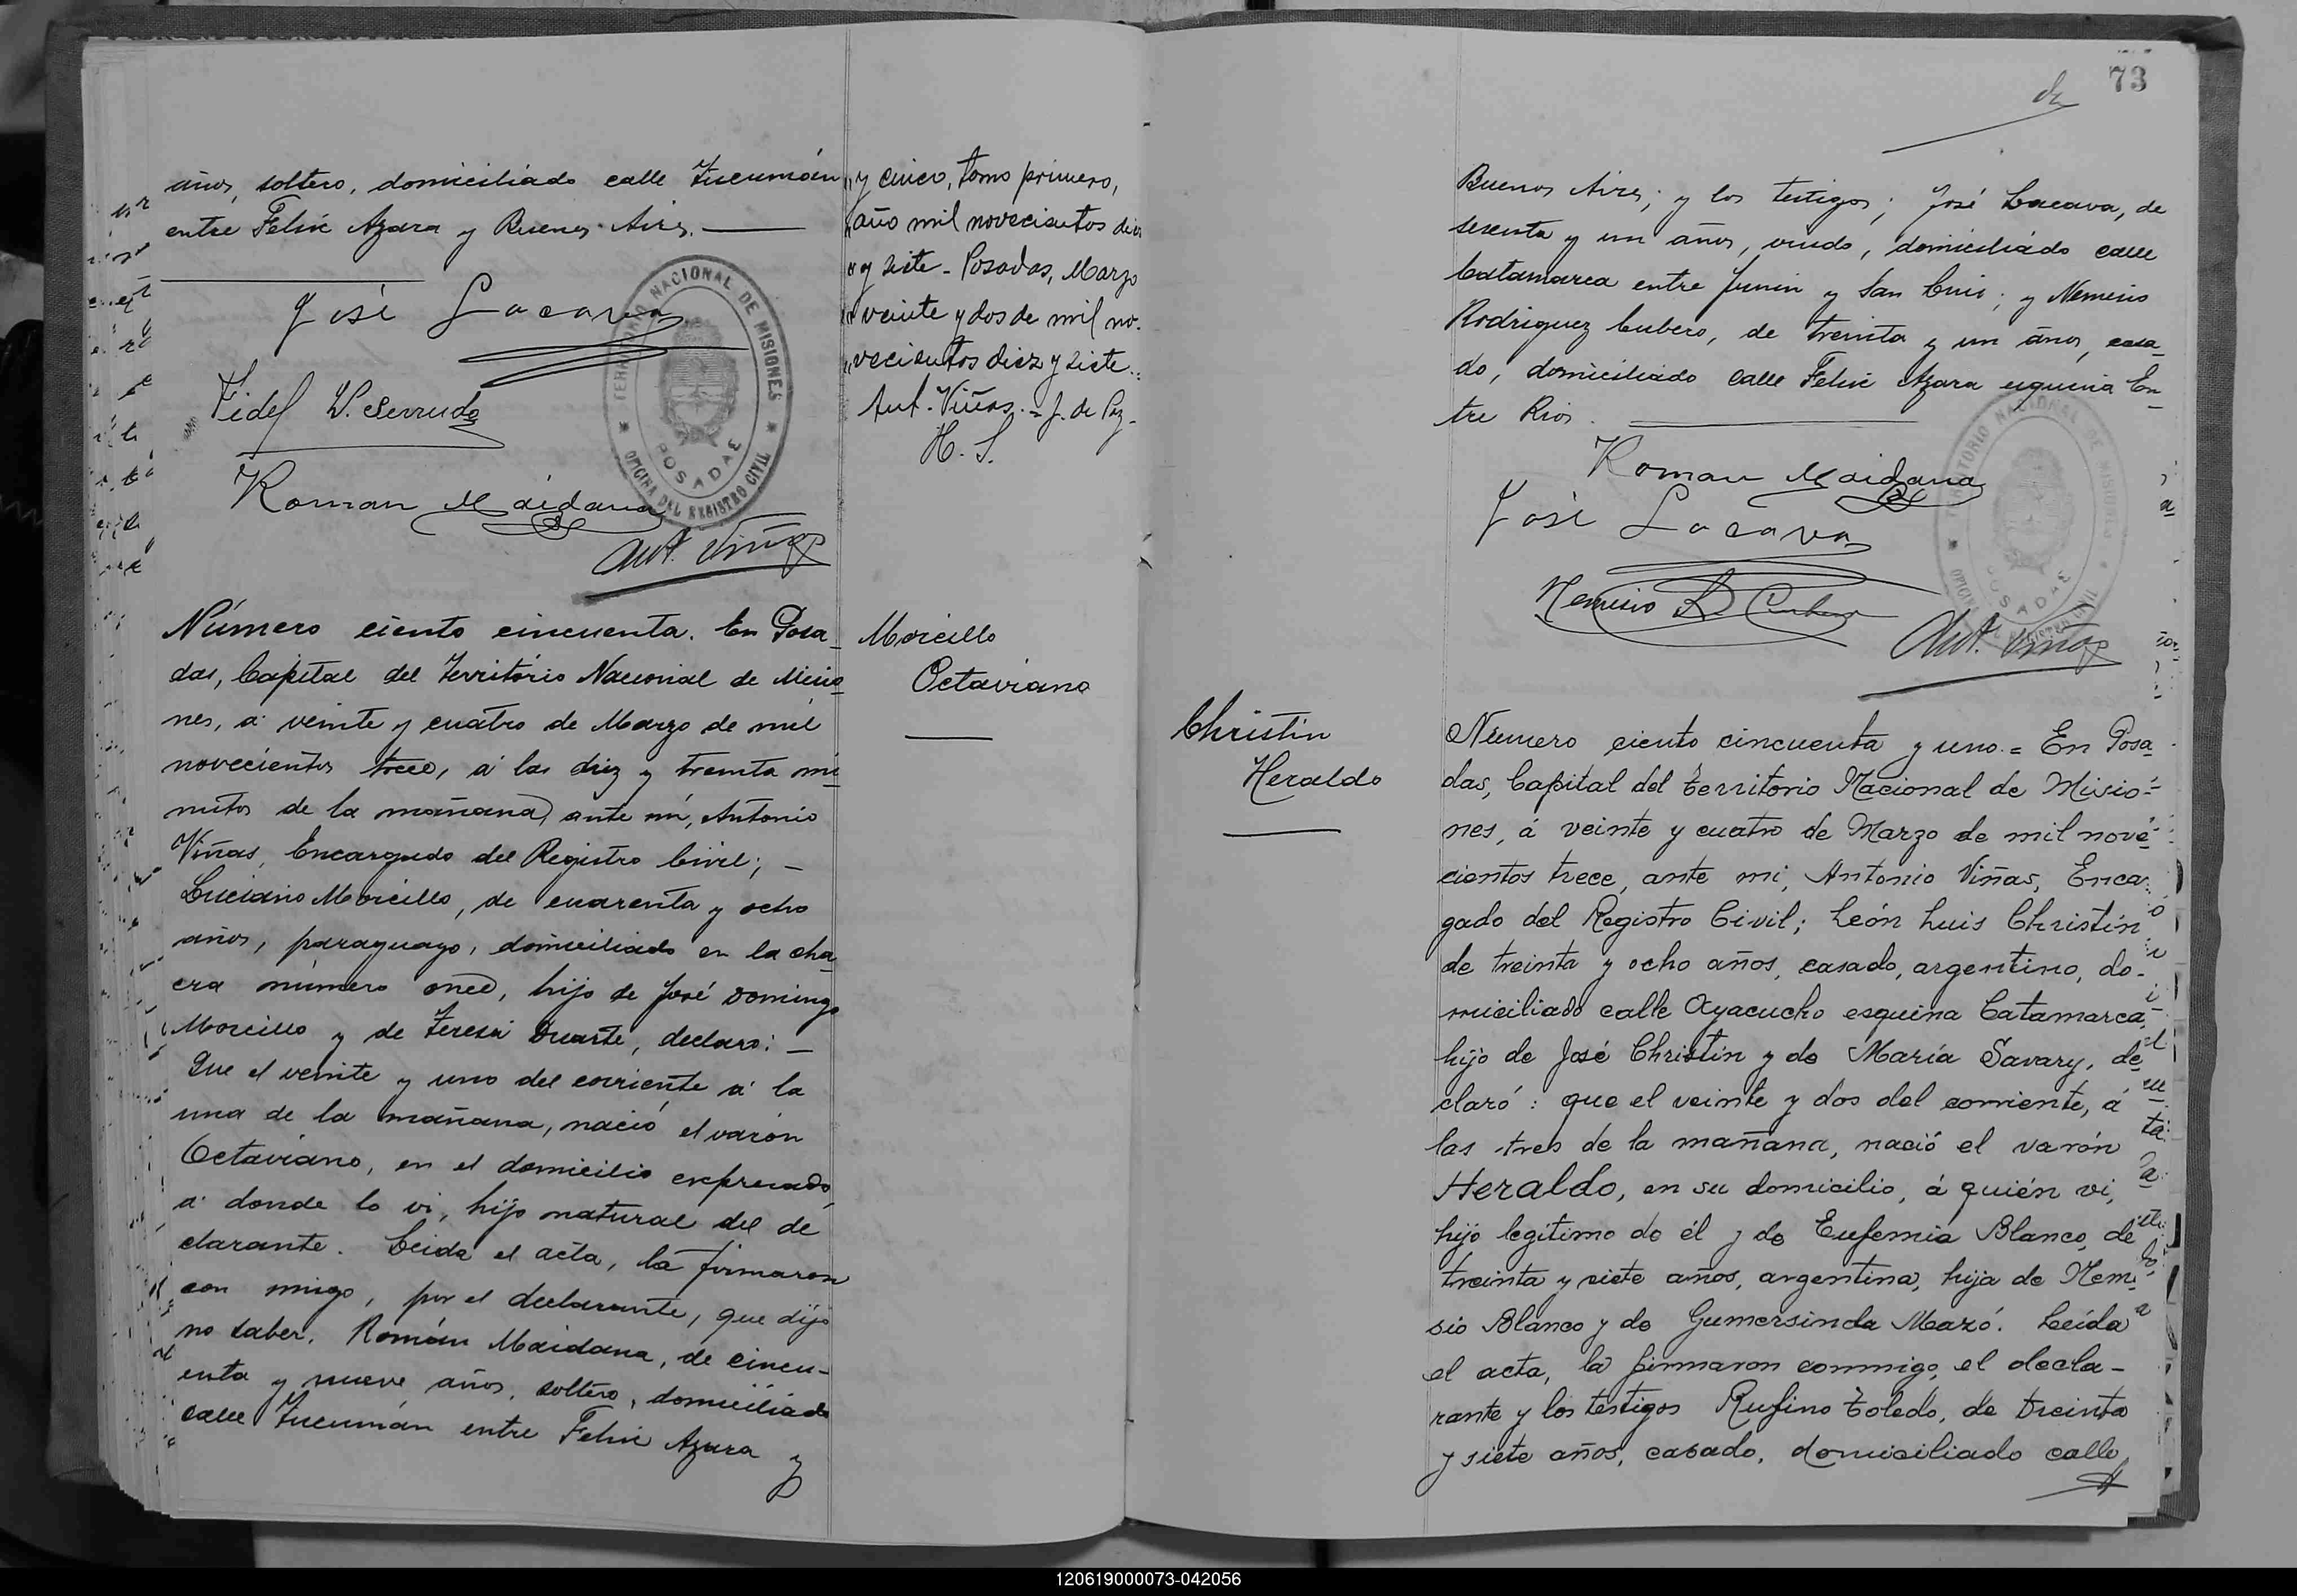 años, soltero, domiciliado calle Tucumán
entre Felix Azara y Buenos Aires.
José Lacava
Fidel S. Serrudo
Roman Maidana
Ant. Viñas
TERRITORIO NACIONAL DE MISIONES
POSADAS
OFICINA DEL REGISTRO CIVIL
y cinco, tomo primero,
año mil novecientos diez
y siete - Posadas, Marzo
veinte y dos de mil no-
vecientos diez y siete.
Ant. Viñas. - J. de Paz.
H. S.
Número ciento cincuenta. En Posa-
das, Capital del Territorio Nacional de Misio-
nes, a veinte y cuatro de Marzo de mil
novecientos trece, á las diez y treinta mi-
nutos de la mañana, ante mí, Antonio
Viñas, Encargado del Registro Civil; -
Luciano Morcillo, de cuarenta y ocho
años, paraguayo, domiciliado en la cha-
cra número once, hijo de José Domingo
Morcillo y de Teresa Duarte, declaro: -
Que el veinte y uno del corriente á la
una de la mañana, nació el varón
Octaviano, en el domicilio expresado
a donde lo vi, hijo natural del de
clarante. Leida el acta, la firmaron
con migo, por el declarante, que dijo
no saber. Román Maidana, de cincu-
enta y nueve años, soltero, domiciliado
calle Tucumán entre Felix Azara y
Morcillo
Octaviano
73
Buenos Aires; y los testigos; José Lacava, de
sesenta y un años, viudo, domiciliado calle
Catamarca entre Junin y San Luis; y Nemesio
Rodriguez Cubero, de treinta y un años, casa-
do, domiciliado calle Felix Azara esquina En-
tre Rios.
Roman Maidana
José Lacava
Nemesio R Cubero
Ant. Viñas
TERRITORIO NACIONAL DE MISIONES
POSADAS
OFICINA DEL REGISTRO CIVIL
Christin
Heraldo
Número ciento cincuenta y uno. = En Posa
das, Capital del territorio Nacional de Misio-
nes, á veinte y cuatro de Marzo de mil nove-
cientos trece, ante mi, Antonio Viñas, Enca
gado del Registro Civil; León Luis Christin
de treinta y ocho años, casado, argentino, do-
miciliado calle Ayacucho esquina Catamarca,
hijo de José Christin y de María Savary, de
claró: que el veinte y dos del corriente, á
las tres de la mañana, nació el varón
Heraldo, en su domicilio, á quién vi,
hijo legítimo de él y de Eufemia Blanco, de
treinta y siete años, argentina, hija de Neme
sio Blanco y de Gumersinda Mazó. Leída
el acta, la firmaron conmigo, el decla-
rante y los testigos Rufino Toledo, de treinta
y siete años, casado, domiciliado calle
120619000073-042056